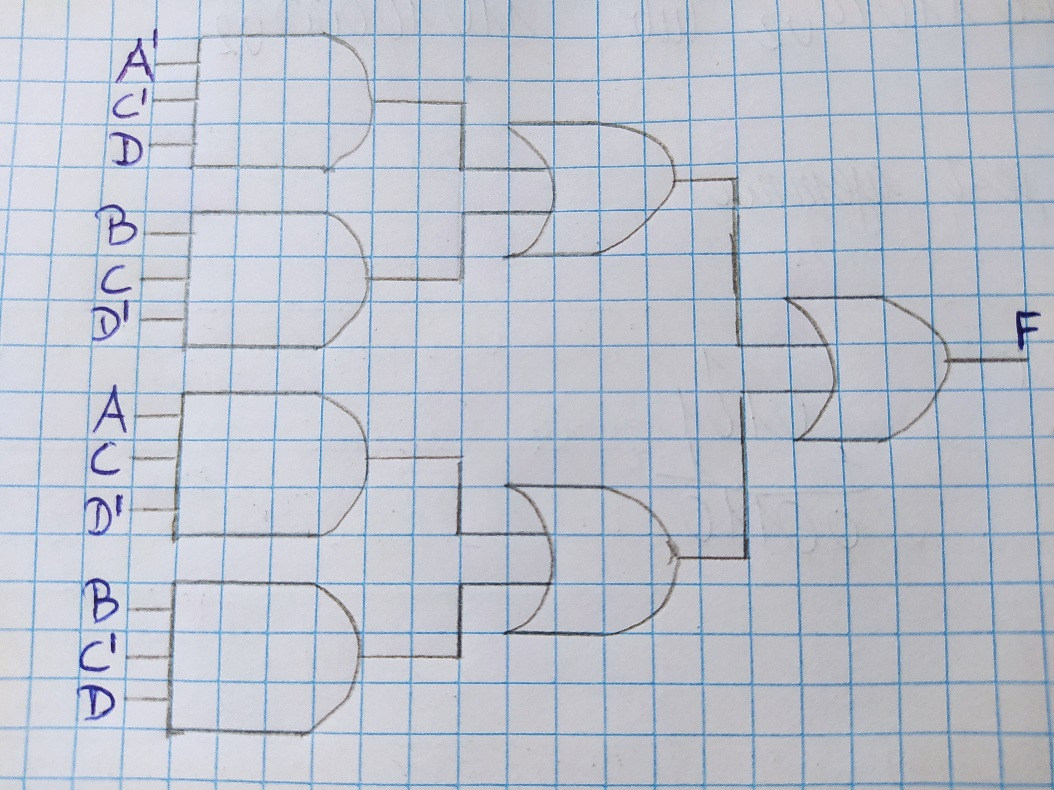 A'
C'
D
B
C
D'
A
C
D'
B
C'
D
F